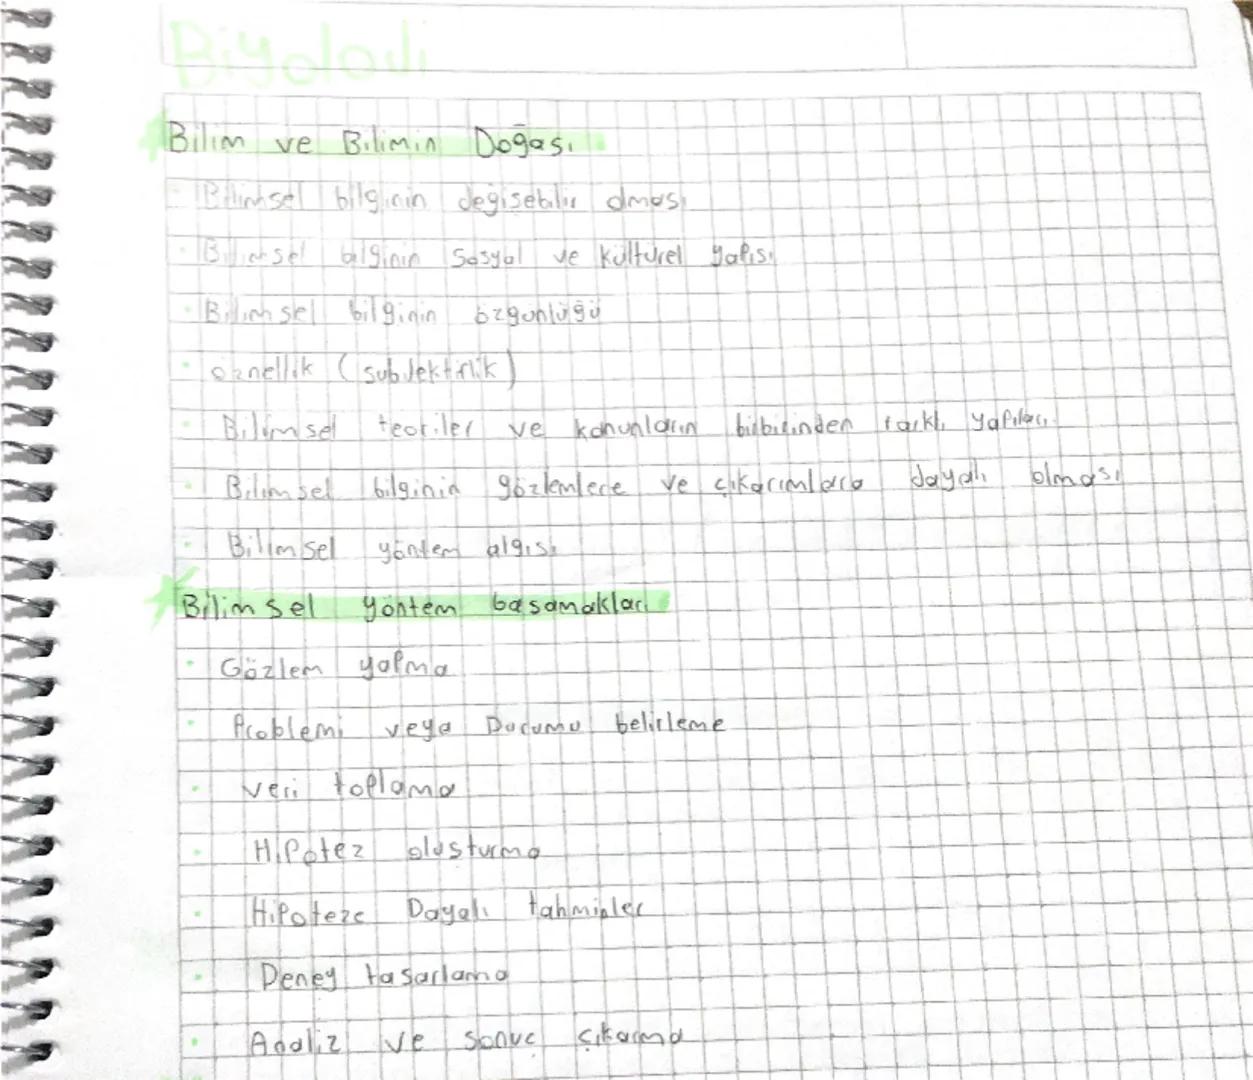 Biyoloji
Bilim ve Bilimin Doğası
Bilimsel bilginin değişebilir olması
Bilimsel bilginin Sosyal ve kültürel yapısı
Bilimsel bilginin özgünlüğü
öznellik (subjektiflik)
Bilimsel teoriler ve kanunların birbirinden farklı yapıları
Bilimsel bilginin gözlemlere ve çıkarımlara dayalı olması
Bilimsel yöntem algısı
Bilimsel yöntem basamakları
Gözlem yapma
Problemi veya Durumu belirleme
veri toplama
Hipotez oluşturma
Hipoteze Dayalı tahminler
Deney tasarlama
Analiz ve sonuç çıkarma